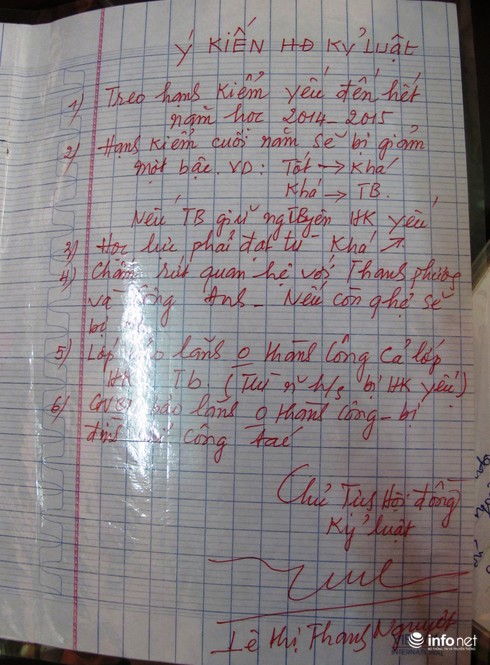 Ý KIẾN HĐ KỶ LUẬT
1) Treo hạnh kiểm yếu đến hết
năm học 2014-2015
2) Hạnh kiểm cuối năm sẽ bị giảm
một bậc. VD: Tốt → Khá
Khá → TB.
Nếu TB giữ nguyên HK yếu
3) Học lực phải đạt từ Khá ↗
4) Chấm dứt quan hệ với Thanh phương
và Anh - Nếu còn ghệ sẽ
bị
5) Lớp bảo lãnh 0 thành công cả lớp
HK Tb. (Trừ h/s bị HK yếu)
6) GVCN bảo lãnh 0 thành công - bị
đình chỉ công tác
Chủ Tịch Hội đồng
Kỷ luật
Lê Thị Thanh Nguyệt
infonet